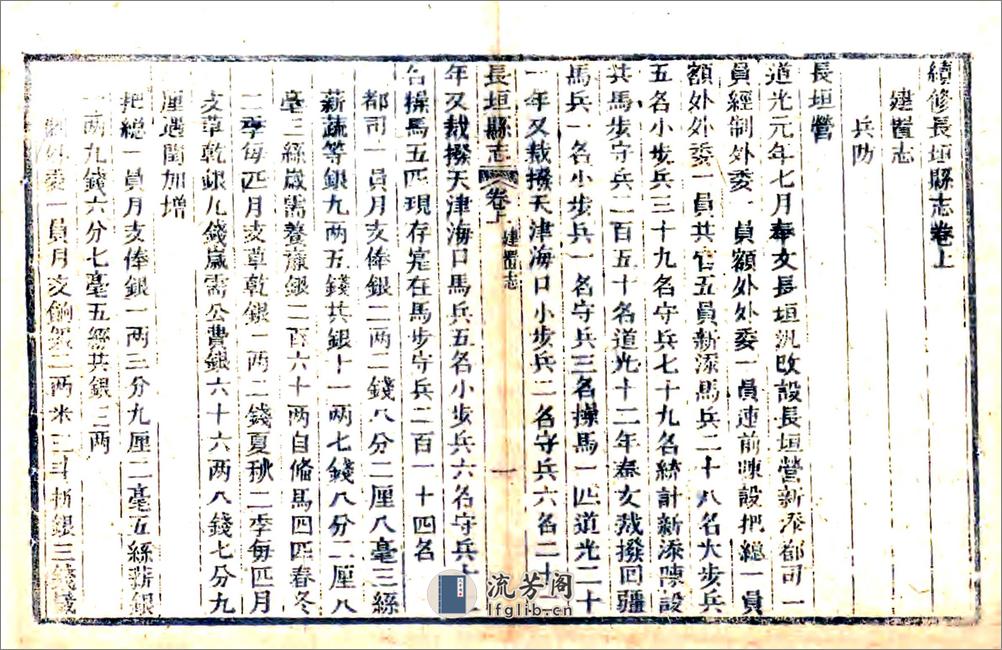 續修長垣縣志卷上
建置志
兵防
長垣營
道光元年七月奉文長垣汛改設長垣營新添都司一
員經制外委一員額外外委一員連前陳設把總一員
額外外委一員共官五員新添馬兵二十八名大步兵
五名小步兵三十九名守兵七十九名統計新添陳設
共馬步守兵二百五十名道光十二年奉文裁撥回疆
馬兵一名小步兵一名守兵三名操馬一匹道光二十
一年又裁撥天津海口小步兵二名守兵六名二十
長垣縣志
卷上
建置志
一
年又裁撥天津海口馬兵五名小步兵六名守兵十
名操馬五匹現存寔在馬步守兵二百一十四名
都司一員月支俸銀二两二錢八分二厘八毫三絲
薪蔬等銀九两五錢共銀十一两七錢八分二厘八
毫三絲歲需養廉銀二百六十两自備馬四匹春冬
二季每匹月支草乾銀一两二錢夏秋二季每匹月
支草乾銀九錢歲需公費銀六十六两八錢七分九
厘遇閏加增
把總一員月支俸銀一两三分九厘二毫五絲薪銀
一两九錢六分七毫五絲共銀三两
額外外委一員月支餉銀二两米三斗折銀三錢
流芳阁
lfglib.cn